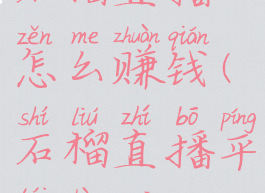 zěn me zhuàn qián
怎么赚钱(
shí liú zhí bō píng
石榴直播平